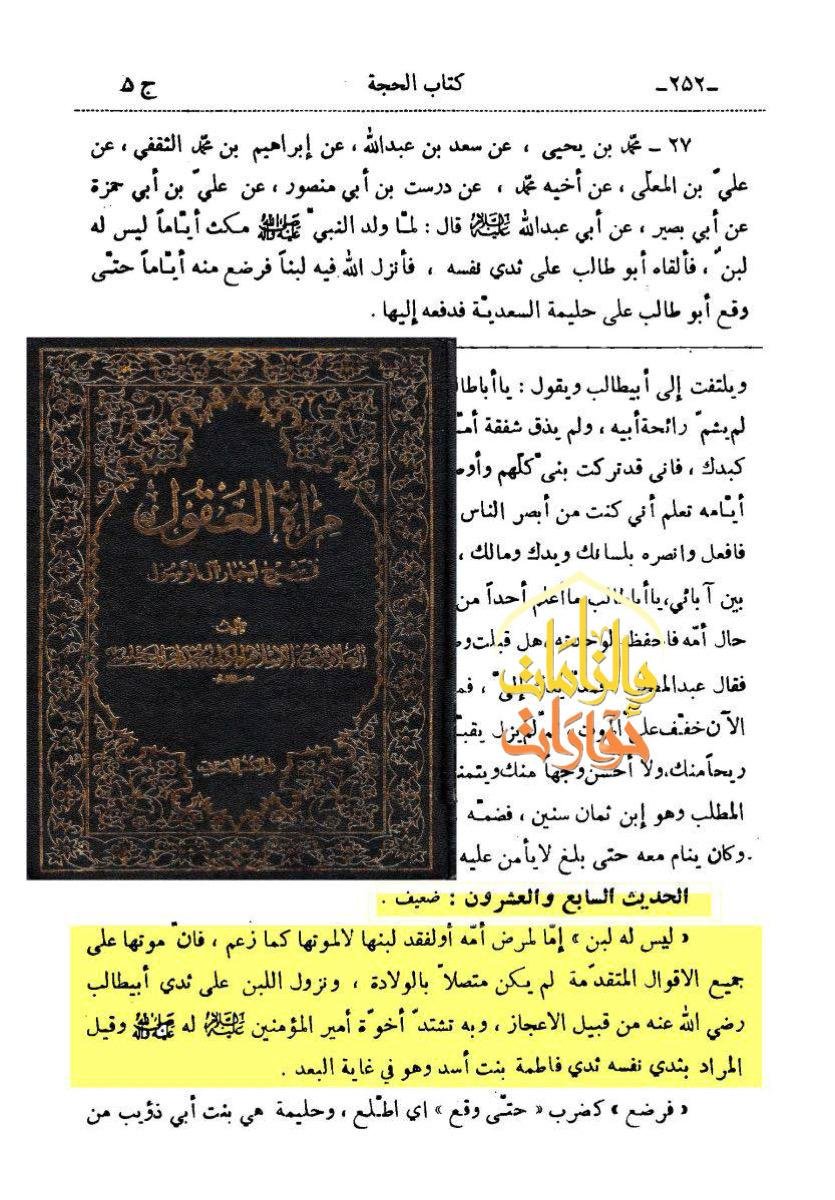 -۲۵۲- كتاب الحجة ج ۵
۲۷ ـ محمّد بن يحيى ، عن سعد بن عبدالله ، عن إبراهيم بن محمّد الثقفي ، عن
عليّ بن المعلّى ، عن أخيه محمّد ، عن درست بن أبي منصور ، عن عليّ بن أبي حمزة
عن أبي بصير ، عن أبي عبدالله عليه السلام قال : لمّا ولد النبيّ صلى الله عليه وآله مكث أيّاماً ليس له
لبنٌ ، فألقاه أبو طالب على ثدي نفسه ، فأنزل الله فيه لبناً فرضع منه أيّاماً حتّى
وقع أبو طالب على حليمة السعديّة فدفعه إليها .
ويلتفت إلى أبيطالب ويقول : ياأباطا
لم يشمّ رائحة أبيه ، ولم يذق شفقة أمّـ
كبدك ، فانى قدتركت بنىّ كلّهم وأو
أيّامه تعلم أني كنت من أبصر الناس
فافعل وانصره بلسانك ويدك ومالك ،
بين آبائي، ياأباطالب ماأعلم أحداً من
حال أمّه فاحفظه لوحدته، هل قبلت و
فقال عبدالمطلب إلىّ ، فمـ
الآن خفّف علىّ الموت ، ثمّ لم يزل يقبّـ
ريحاً منك، ولا أحسن وجهاً منك ويتمنـ
المطلب وهو إبن ثمان سنين ، فضمّه
وكان ينام معه حتى بلغ لايأمن عليه
مرآة العقول
في شرح أخبار آل الرسول
تأليف
والزامات
الحديث السابع والعشرون : ضعيف .
« ليس له لبن » إمّا لمرض أمّه أولفقد لبنها لالموتها كما زعم ، فانّ موتها على
جميع الاقوال المتقدّمة لم يكن متصلاً بالولادة ، ونزول اللبن على ثدي أبيطالب
رضي الله عنه من قبيل الاعجاز ، وبه تشتدّ أخوّة أمير المؤمنين عليه السلام له صلى الله عليه وآله وقيل
المراد بثدي نفسه ثدي فاطمة بنت أسد وهو في غاية البعد .
« فرضع » كضرب « حتّى وقع » اي اطّلع ، وحليمة هي بنت أبي ذؤيب من